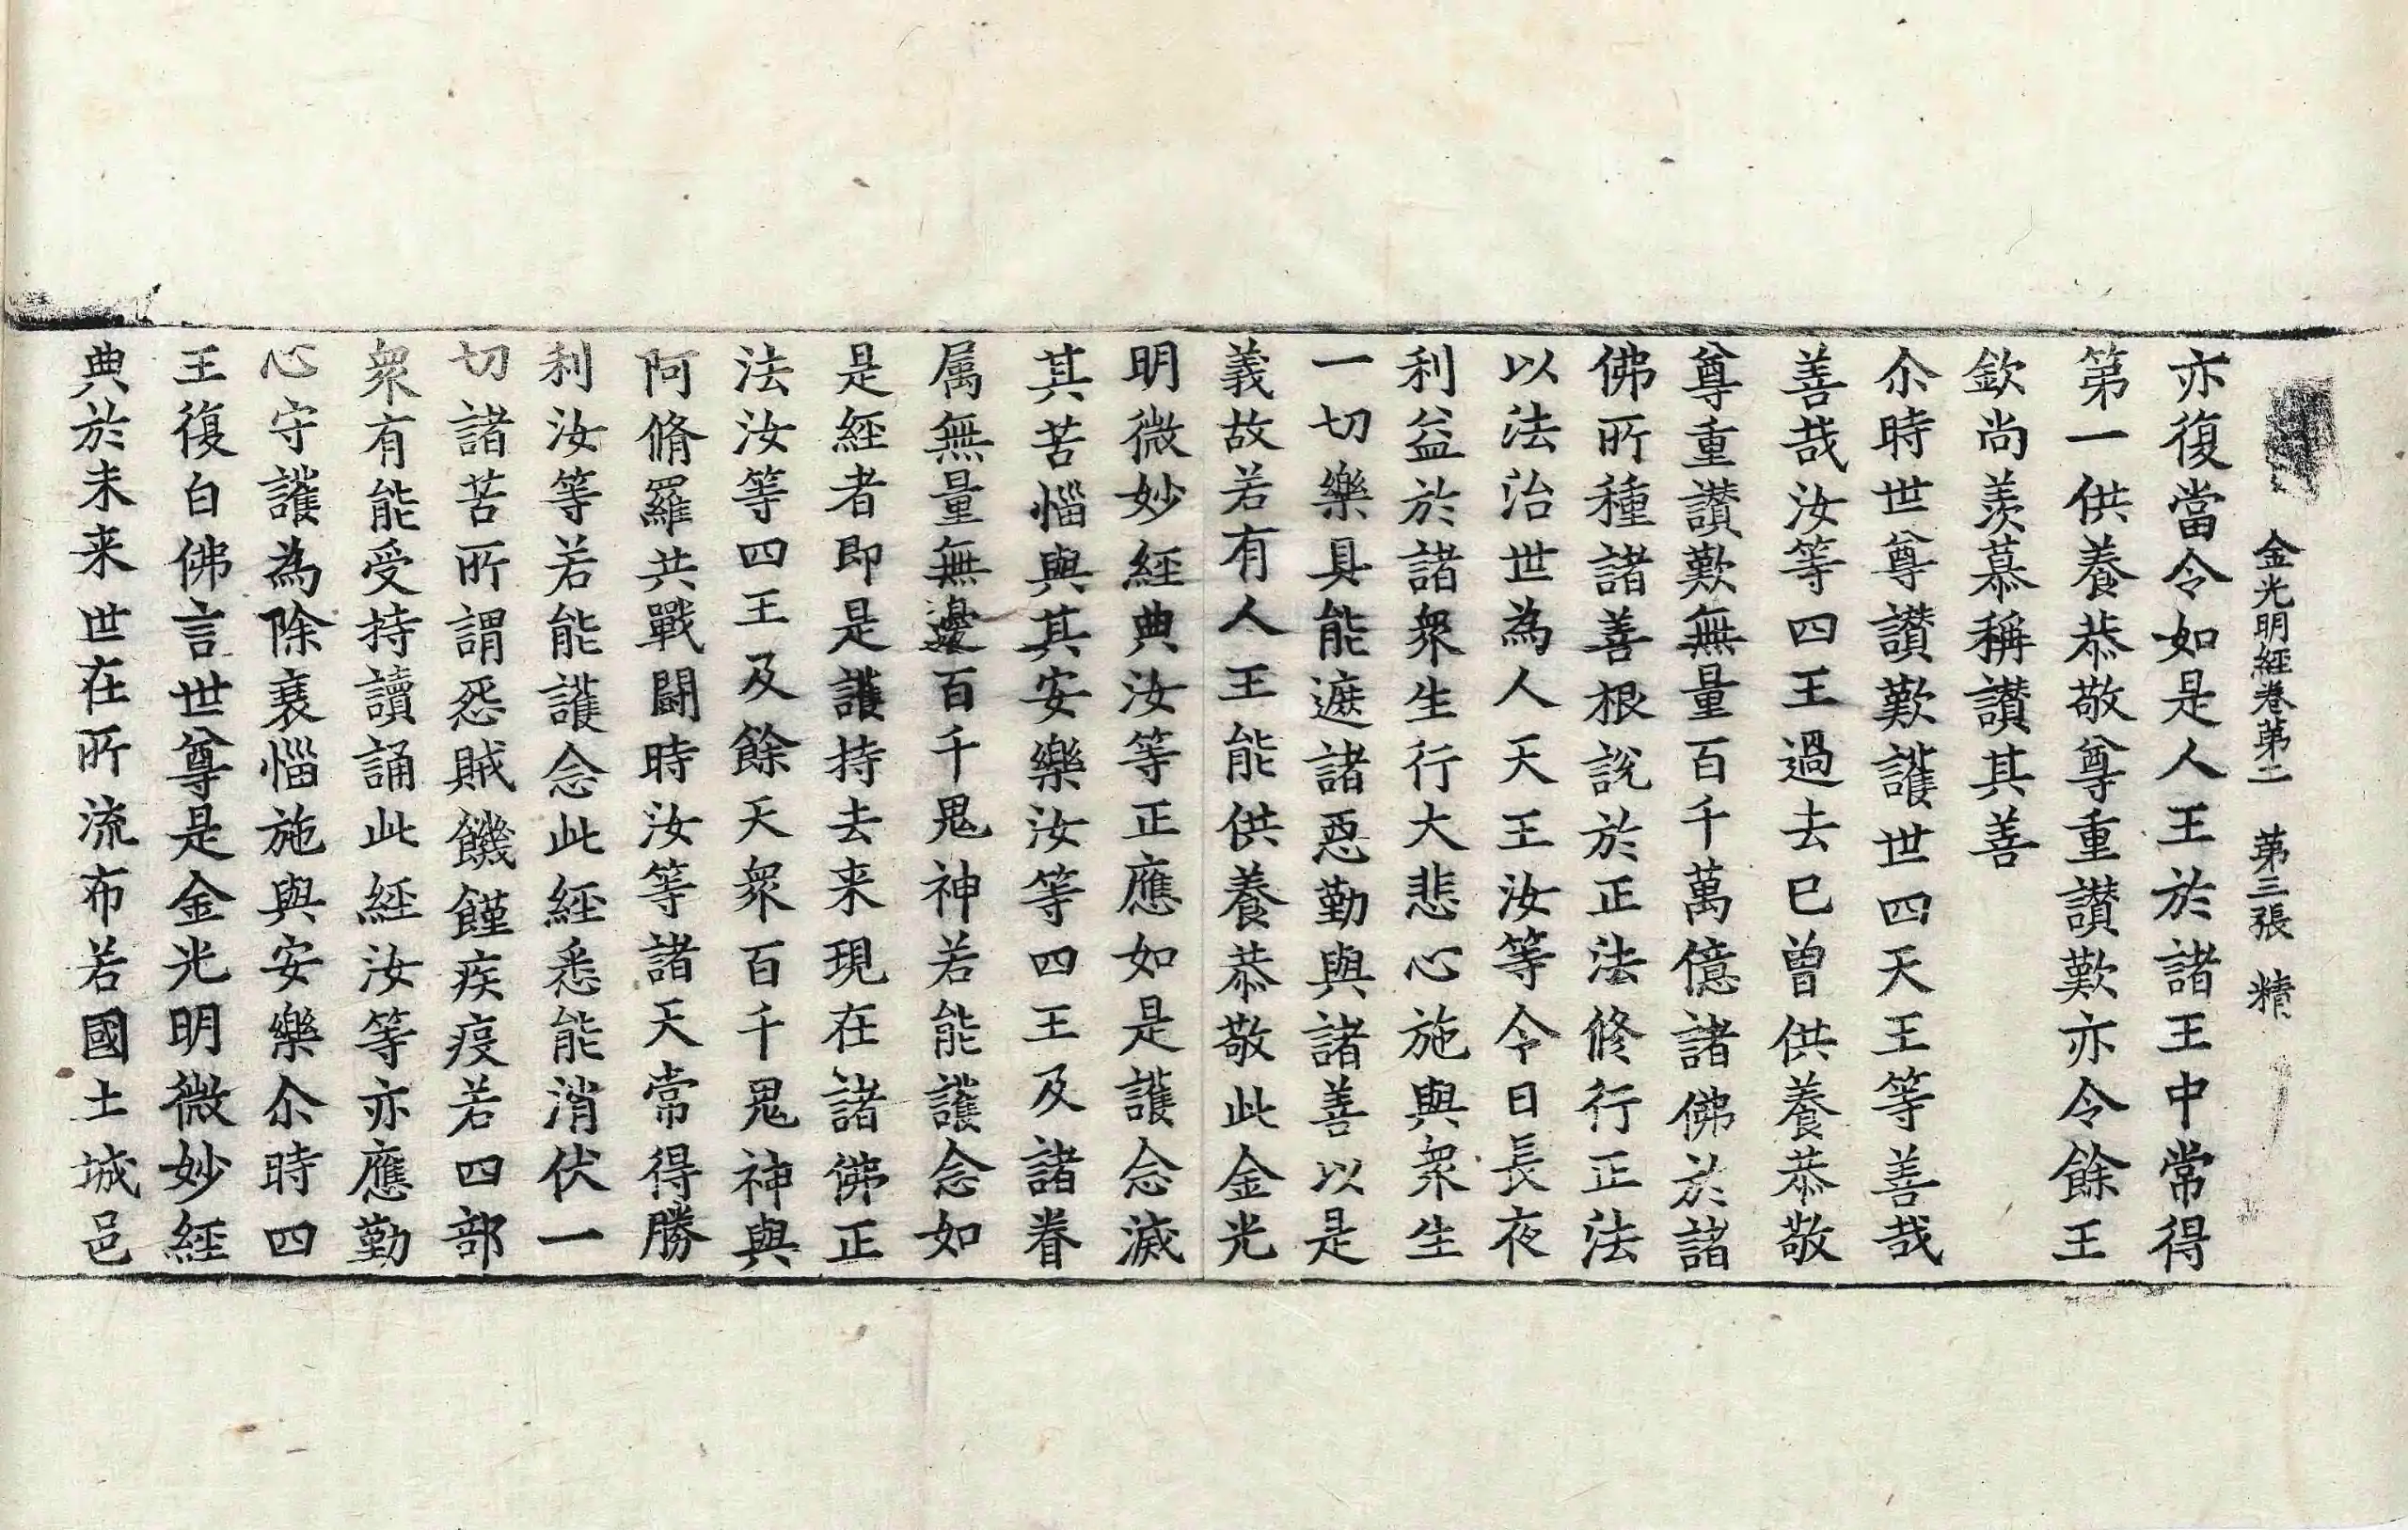 金光明經卷第二　第三張　精
亦復當令如是人王於諸王中常得
第一供養恭敬尊重讃歎亦令餘王
欽尚羨慕稱讃其善
尒時世尊讃歎護世四天王等善哉
善哉汝等四王過去已曾供養恭敬
尊重讃歎無量百千萬億諸佛於諸
佛所種諸善根說於正法修行正法
以法治世為人天王汝等今日長夜
利益於諸衆生行大悲心施與衆生
一切樂具能遮諸惡勤與諸善以是
義故若有人王能供養恭敬此金光
明微妙經典汝等正應如是護念滅
其苦惱與其安樂汝等四王及諸眷
属無量無邊百千鬼神若能護念如
是經者即是護持去来現在諸佛正
法汝等四王及餘天衆百千鬼神與
阿脩羅共戰闘時汝等諸天常得勝
利汝等若能護念此經悉能消伏一
切諸苦所謂怨賊饑饉疾疫若四部
衆有能受持讀誦此經汝等亦應勤
心守護為除衰惱施與安樂尒時四
王復白佛言世尊是金光明微妙經
典於未来世在所流布若國土城邑